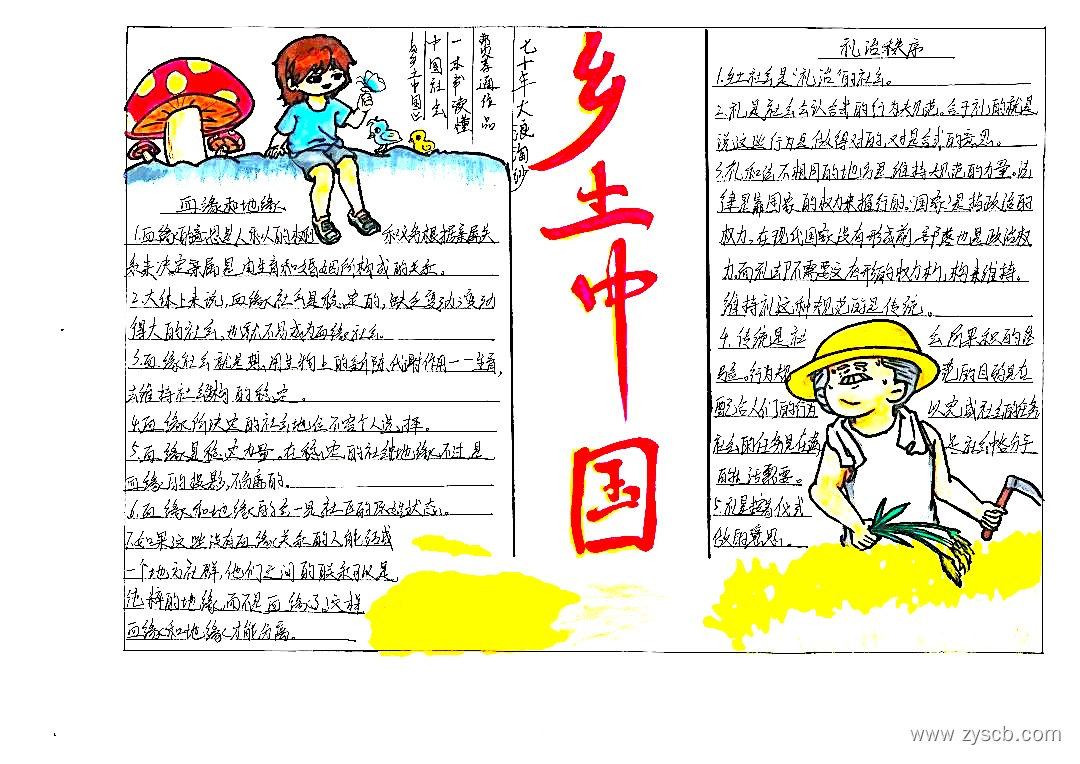 七十年大浪淘沙
费孝通作品
一本书读懂
中国社会
《乡土中国》
乡土中国
血缘和地缘
1.血缘的意思是人和人的权利 和义务根据亲属关
系来决定亲属是由生育和婚姻所构成的关系。
2.大体上来说,血缘社会是稳定的,缺乏变动;变动
得大的社会,也就不易成为血缘社会。
3.血缘社会就是想用生物上的新陈代谢作用一一生育,
去维持社会结构的稳定。
4.血缘所决定的社会地位不容个人选择。
5.血缘是稳定力量。在稳定的社会地缘不过是
血缘的投影,不分离的。
6.血缘和地缘的合一是社区的原始状态。
7.如果这些没有血缘关系的人能结成
一个地方社群,他们之间的联系可以是
纯粹的地缘,而不是血缘了,这样
血缘和地缘才能分离。
礼治秩序
1.乡土社会是“礼治”的社会。
2.礼是社会公认合式的行为规范。合于礼的就是
说这些行为是做得对的,对是合式的意思。
3.礼和法不相同的地方是维持规范的力量。法
律是靠国家的权力来推行的。“国家”是指政治的
权力,在现代国家没有形成前,部落也是政治权
力。而礼却不需要这有形的权力机构来维持。
维持礼这种规范的是传统。
4.传统是社 会所累积的经
验。行为规 范的目的是在
配合人们的行为 以完成社会的任务
社会的任务是在满 足社会中各分子
的生活需要。
5.礼是按着仪式
做的意思。
www.zyscb.com